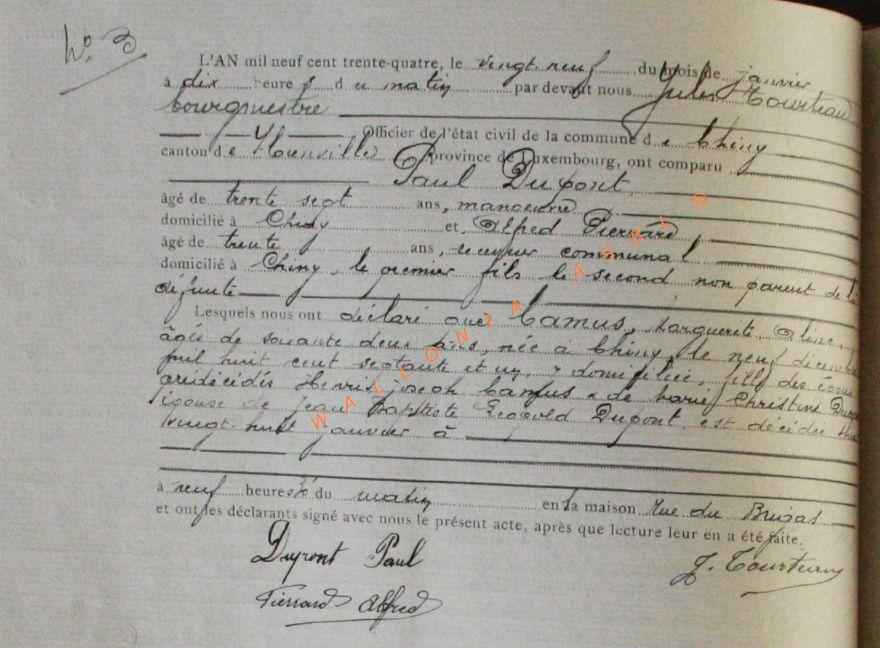 No 3
L'AN mil neuf cent trente-quatre, le vingt-neuf du mois de janvier
à dix heures du matin par devant nous Jules Tourteau
bourgmestre
Officier de l'état civil de la commune de Chiny
canton de Florenville Province de Luxembourg, ont comparu
Paul Dupont,
âgé de trente sept ans, manoeuvre
domicilié à Chiny et Alfred Pierrard,
âgé de trente ans, receveur communal
domicilié à Chiny, le premier fils le second non parent de la
défunte
Lesquels nous ont déclaré que Camus, Marguerite Aline,
âgée de soixante deux ans, née à Chiny, le neuf décembre
mil huit cent septante et un, y domiciliée, fille des époux
prédécédés Henri-joseph Camus & de Marie Christine
épouse de Jean Baptiste Léopold Dupont, est décédée
vingt-huit janvier à
à neuf heures 30 du matin en la maison Rue du
et ont les déclarants signé avec nous le présent acte, après que lecture leur en a été faite.
Dupont Paul J. Tourteau
Pierrard Alfred
WALLONIA ASBL ©